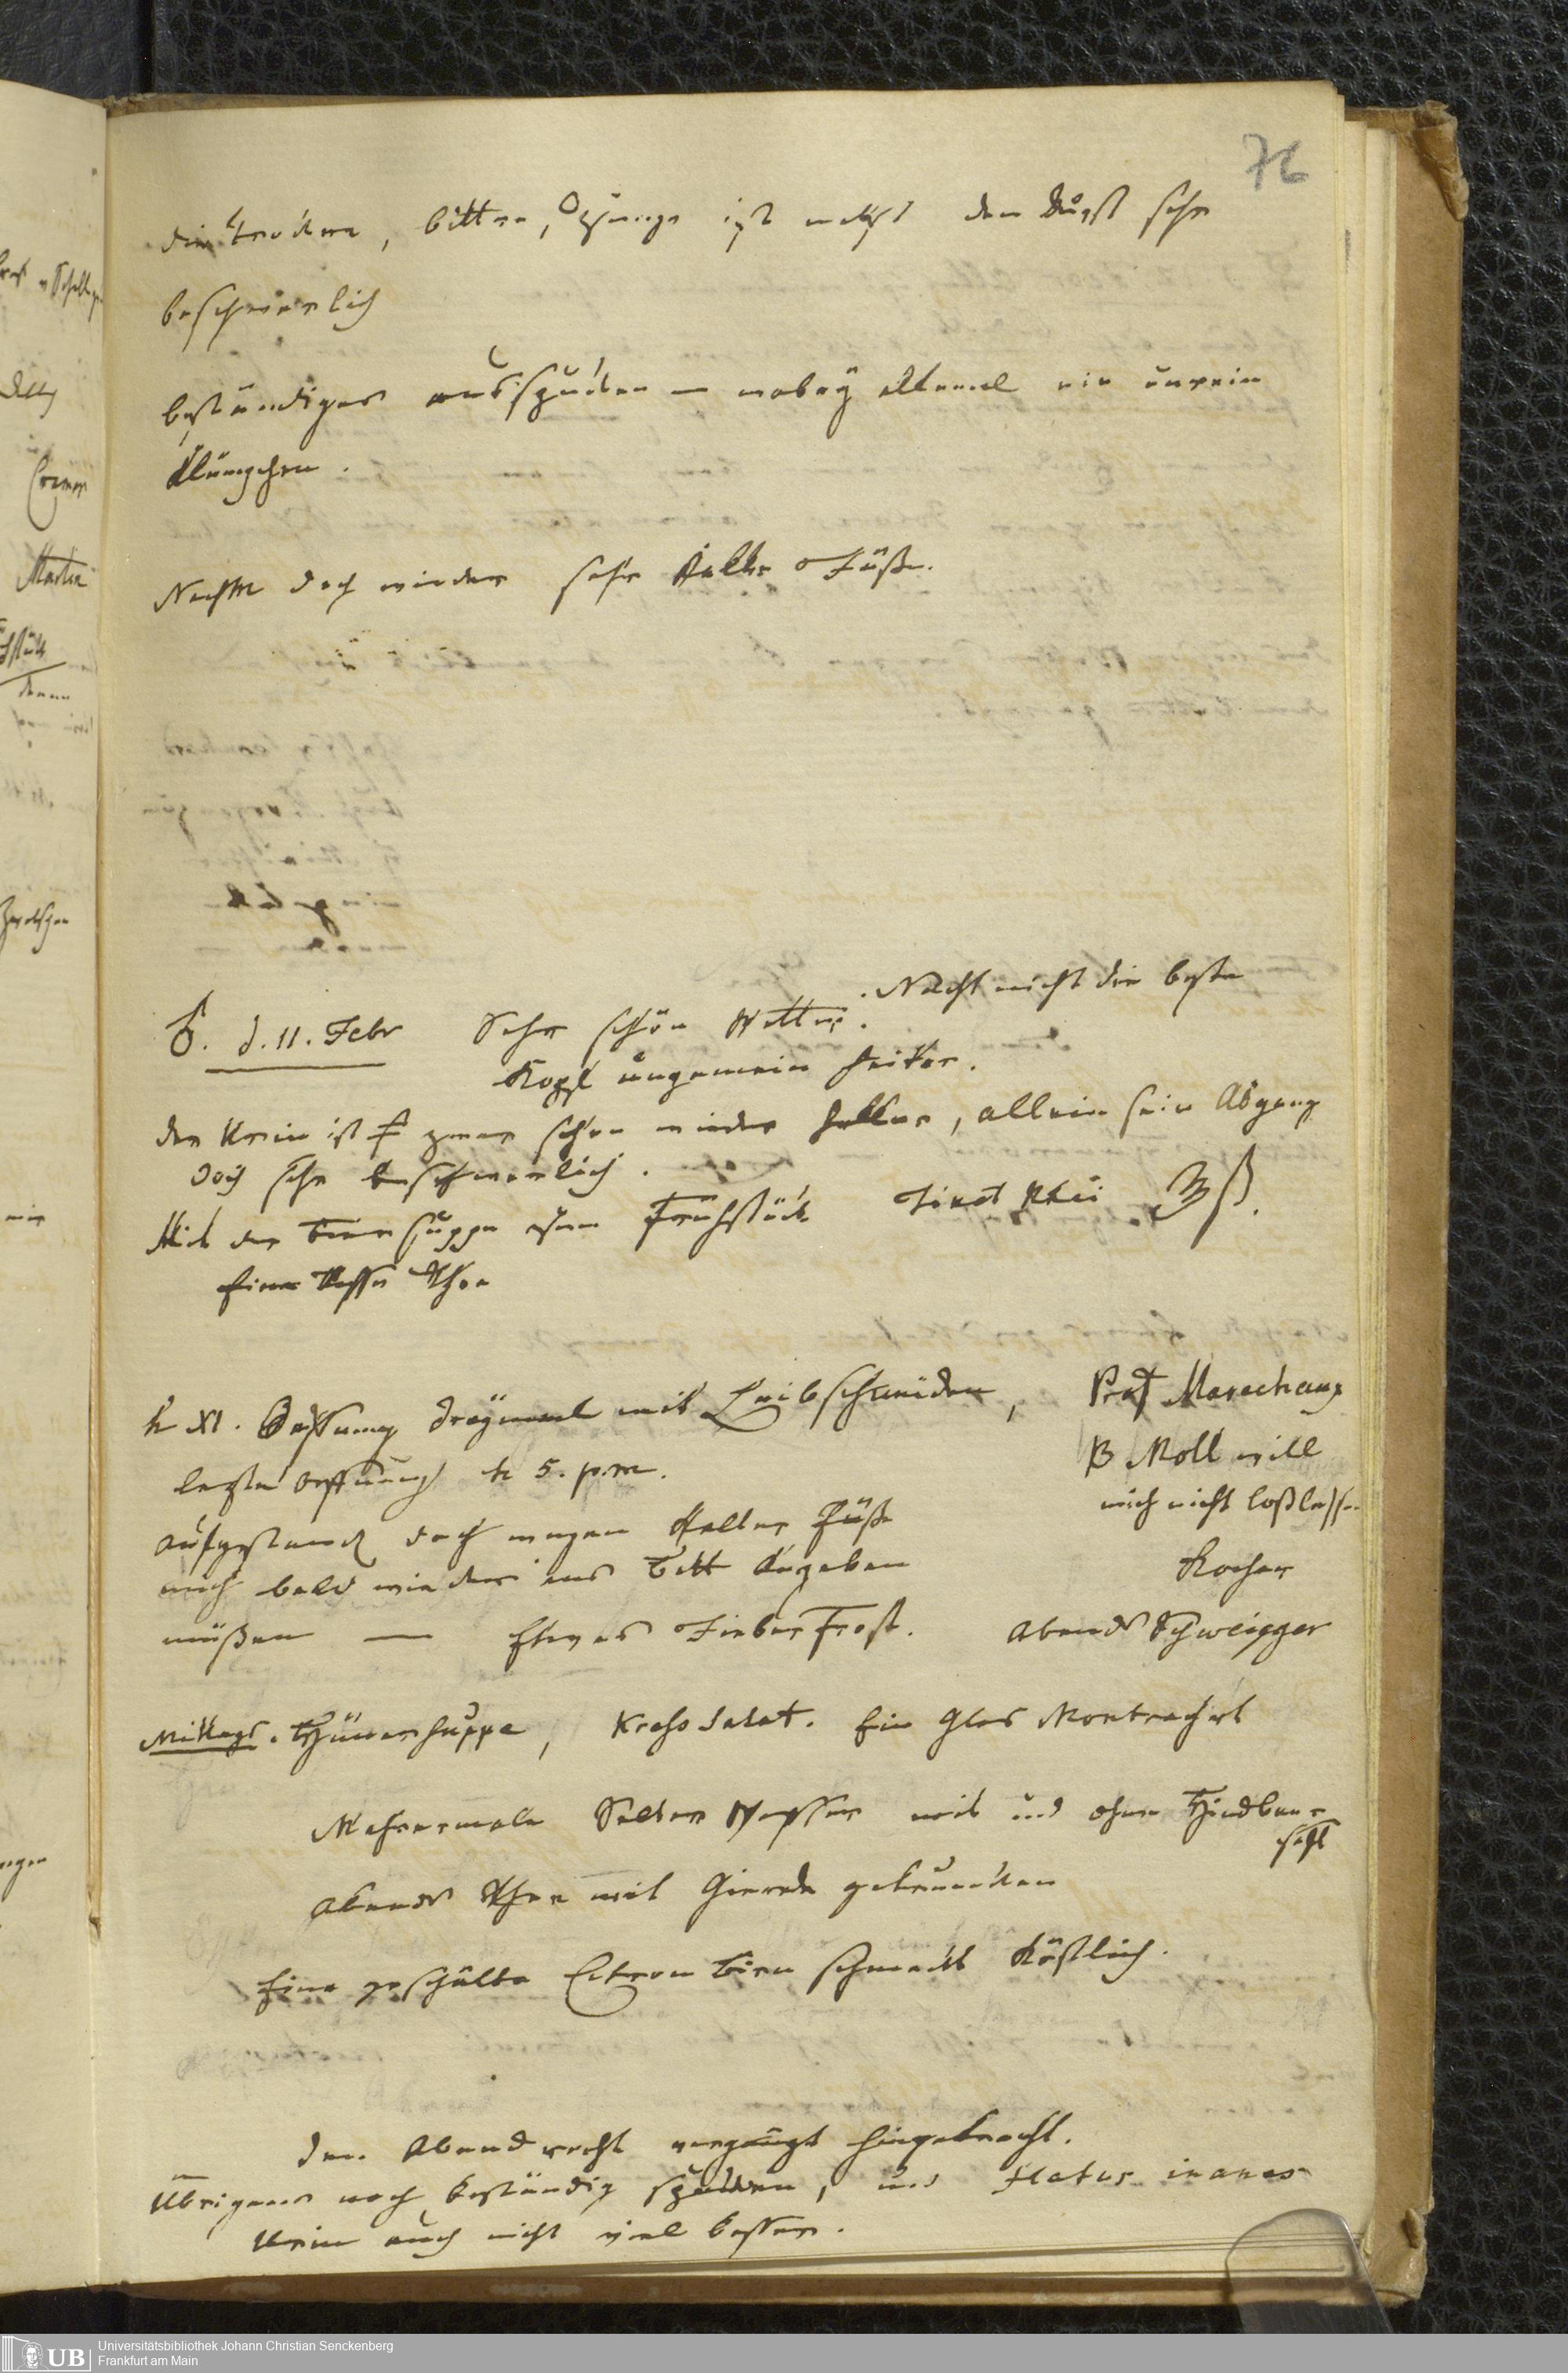 76
die trockene, bittre, Zunge ist nebst dem Durst sehr
beschwerlich
beständiges ausspucken — wobey allemal ein unrein
Klümpchen.
Nachm doch wieder sehr kalte Füße.
♂. d. 11. Febr Sehr schön Wetter. Nacht nicht die beste
Kopf ungemein heiter.
der Urin ist zwar schon wieder heller, allein sein Abgang
doch sehr beschwerlich.
Mit der Biersuppe zum Frühstück Tinct Rhei ʒß.
Eine Tasse Thee
h XI. Oeffnung dreymal mit Leibschneiden,
lezte Oeffnung h 5. p.m.
aufgestand doch wegen kalter Füße
mich bald wieder ins Bett begeben
müßen — Etwas Fieber Frost.
Prof Marechaux
B Moll will
mich nicht loßlassen
Kocher
Abends Schweigger
Mittags. Hünersuppe, Kress Salat. Ein Glas Montrachet
Mehrermale Selter Wasser mit und ohne Hindbeer
saft
Abends Thee mit Gierde getruncken
Eine geschälte Citron Birn schmeckt köstlich.
Den Abend recht vergnügt hingebracht.
Übrigens noch beständig spucken, und Flatus inanes
Urin auch nicht viel besser.
UB Universitätsbibliothek Johann Christian Senckenberg
Frankfurt am Main